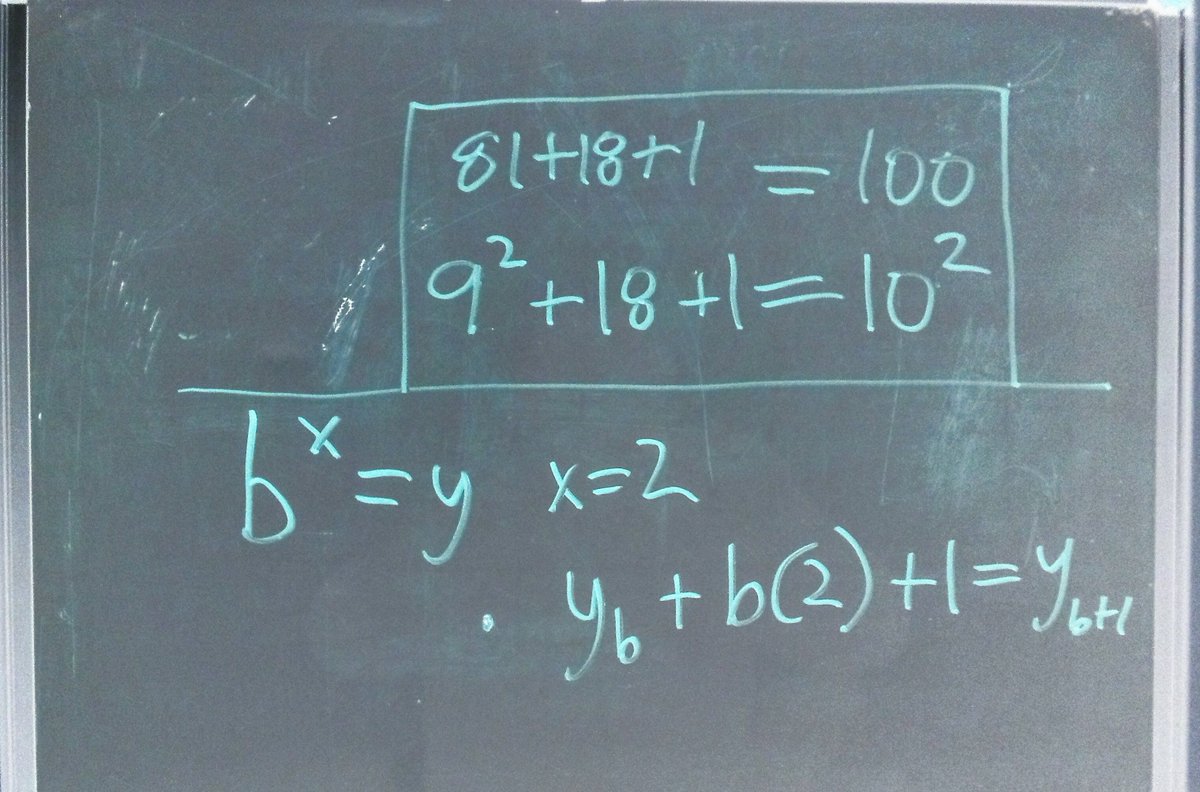 81+18+1 = 100
9²+18+1=10²
bˣ=y x=2
. y_b + b(2)+1=y_{b+1}